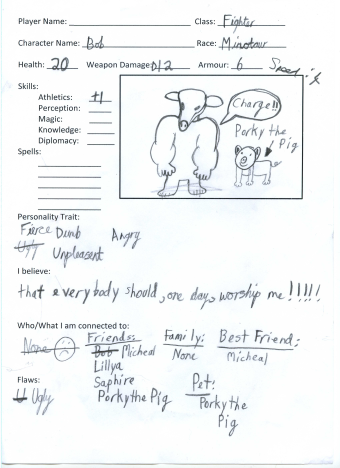 Player Name: Class: Fighter
Character Name: Bob Race: Minotaur
Health: 20 Weapon Damage: D12 Armour: 6 Speed:
Skills:
Athletics: +1
Perception:
Magic:
Knowledge:
Diplomacy:
Spells:
Charge!!
Porky the
Pig
Personality Trait:
Fierce Dumb Angry
Unpleasent
I believe:
that everybody should, one day, worship me!!!!!
Who/What I am connected to:
None
Friends:
Bob Micheal
Lillya
Saphire
Porky the Pig
Family:
None
Best Friend:
Micheal
Pet:
Porky the
Pig
Flaws:
Ugly